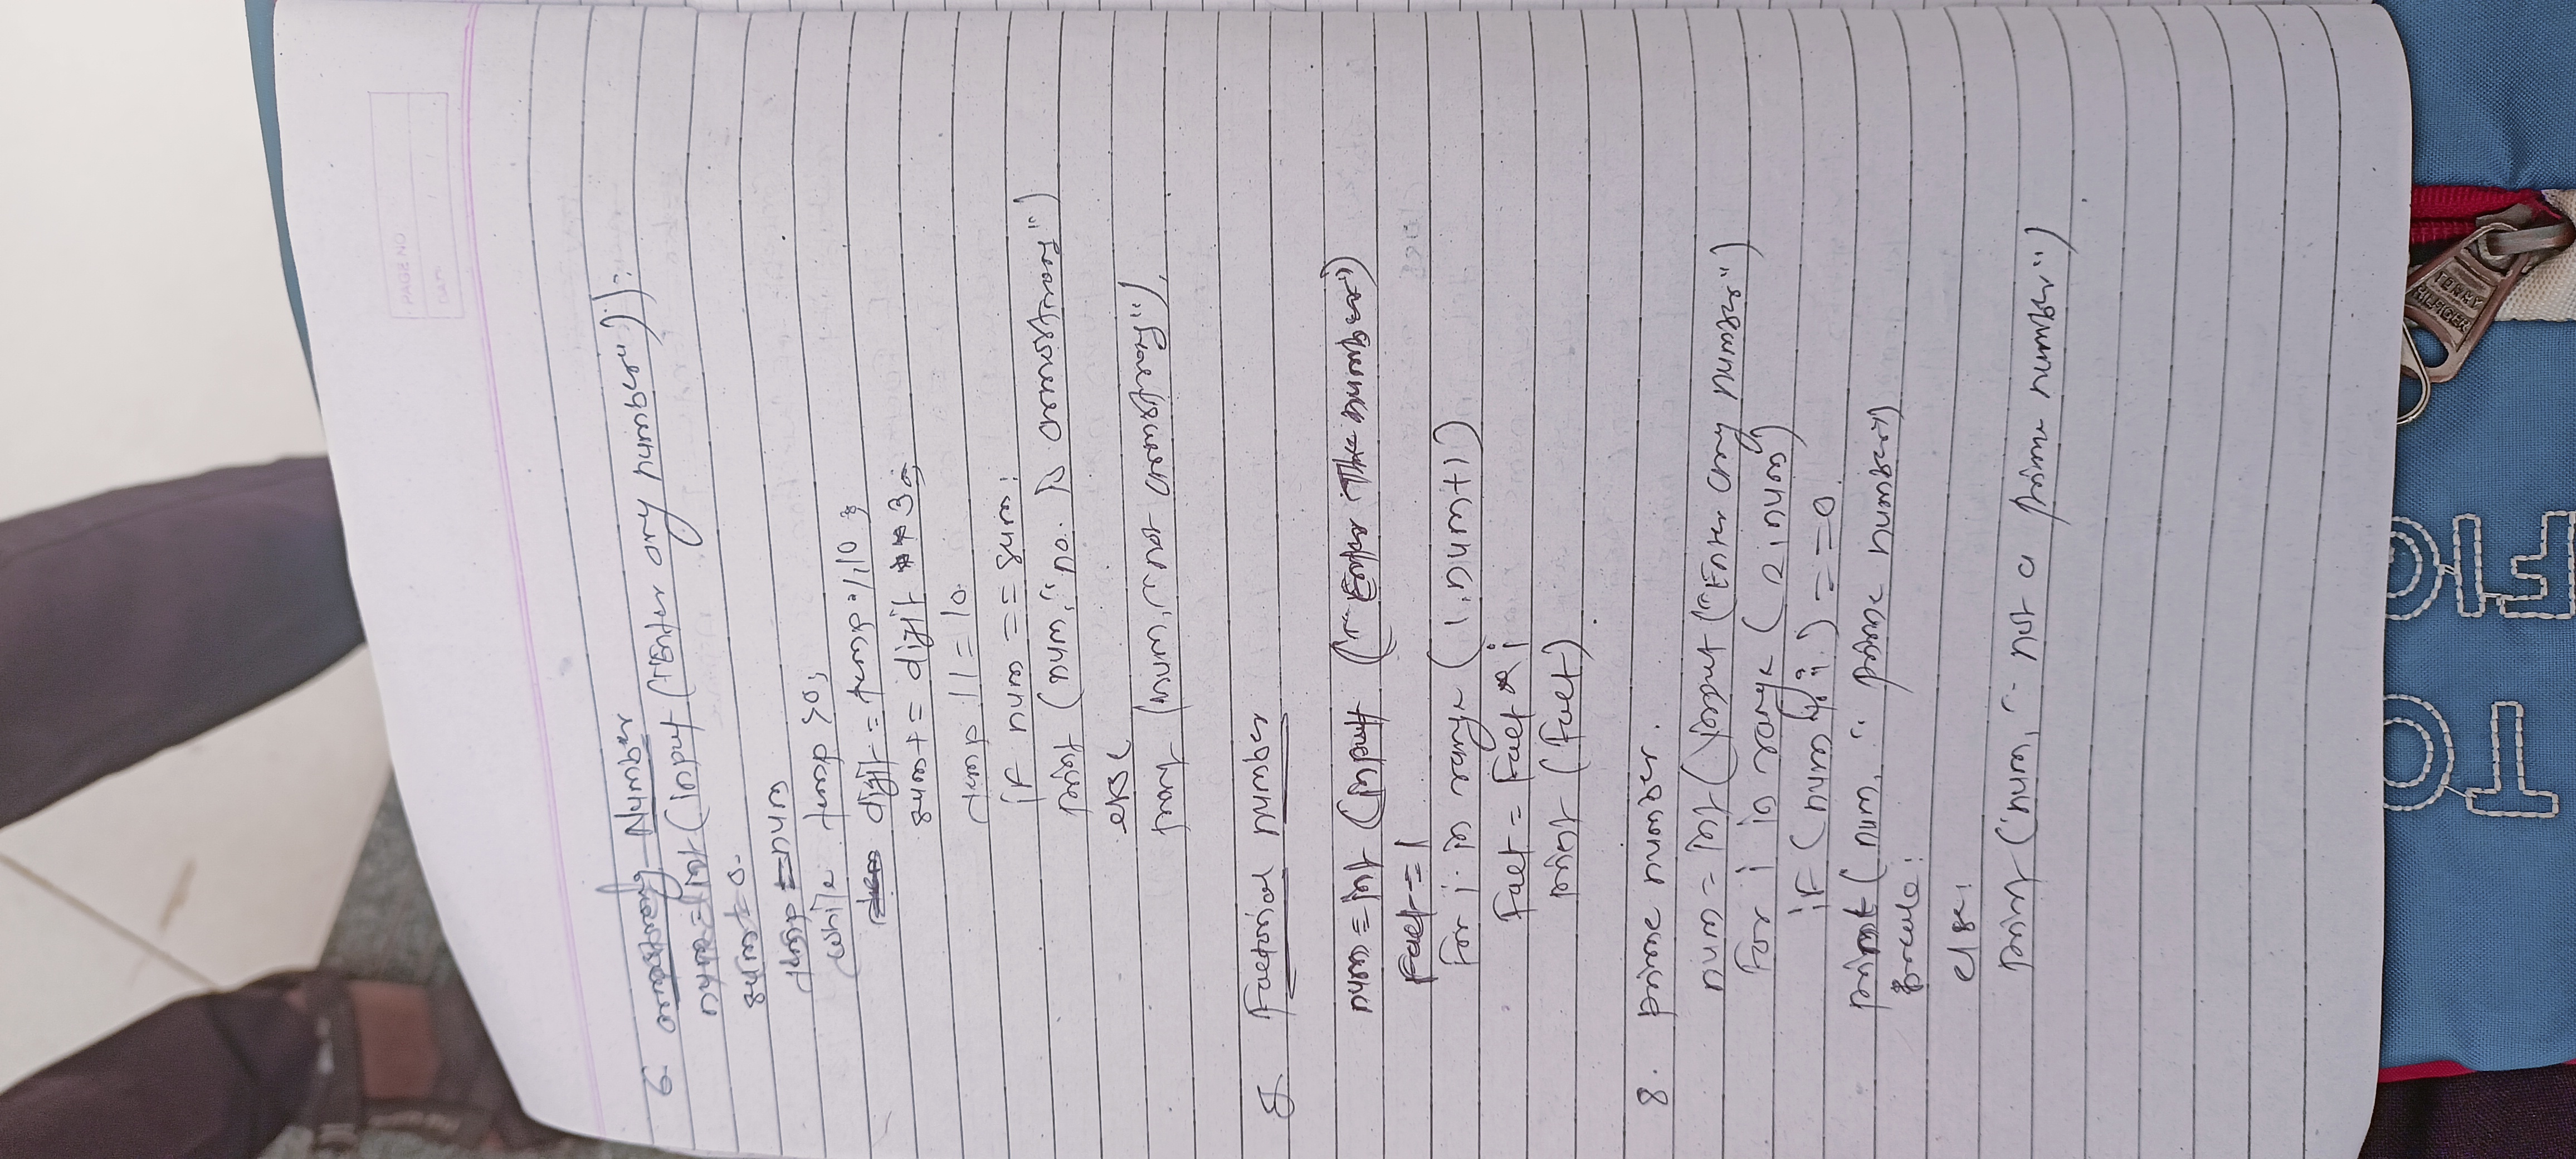 PAGE NO
DATE
6 armstrong Number
num = int(input("Enter any number")):
sum = 0.
temp = num
while temp >0;
digit = temp % 10 ;
sum += digit **3;
temp // = 10
if num == sum:
print (num," no. is armstrong")
else
print (num, "not armstrong")
Factorial number
num = int (input ("Enter the number"))
Fact = 1
for i in range (1, num+1)
Fact = Fact * i
print (Fact)
8. prime number.
num = int (input ("Enter any number")
For i in range (2 i num)
if (num % i) == 0
print (num, " prime number")
break:
else:
print ("num, " not a prime number")
TOMMY
HILFIGER